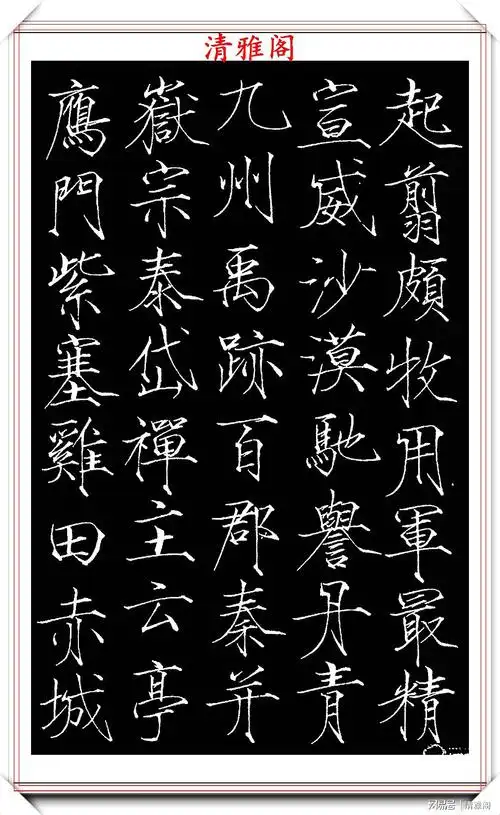 清雅阁
起翦頗牧用軍最精
宣威沙漠馳譽丹青
九州禹跡百郡秦并
嶽宗泰岱禪主云亭
鴈門紫塞雞田赤城
网易号 | 清雅阁